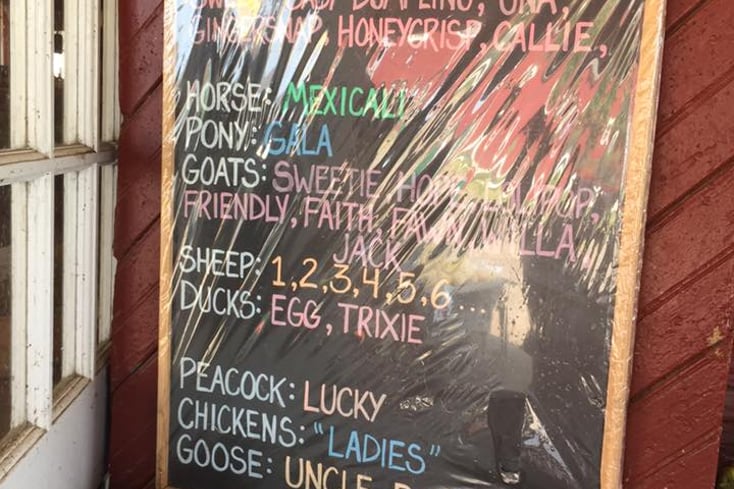 DUMPLING, UNA,
GINGERSNAP, HONEYCRISP, CALLIE,
HORSE: MEXICALI
PONY: GALA
GOATS: SWEETIE, HOPE, LOLLIPOP,
FRIENDLY, FAITH, FAWN, WILLA,
JACK
SHEEP: 1,2,3,4,5,6...
DUCKS: EGG, TRIXIE
PEACOCK: LUCKY
CHICKENS: "LADIES"
GOOSE: UNCLE